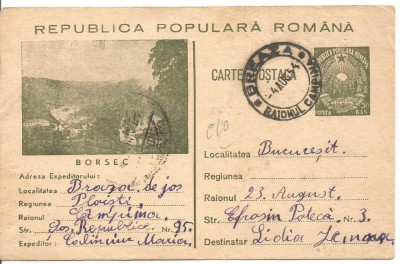 REPUBLICA POPULARĂ ROMÂNĂ
CARTE POSTALĂ
REPUBLICA POPULARĂ ROMÂNĂ
POSTA BANI
BREAZA
RAIONUL CAMPINA
BORSEC
Adresa Expeditorului:
Localitatea Breaza de jos
Regiunea Ploiesti
Raionul Câmpina
Str. Republicei Nr. 95.
Expeditor: Maria
Localitatea București.
Regiunea
Raionul 23. August.
Str. Efrosin Poteca Nr. 3.
Destinatar Lidia